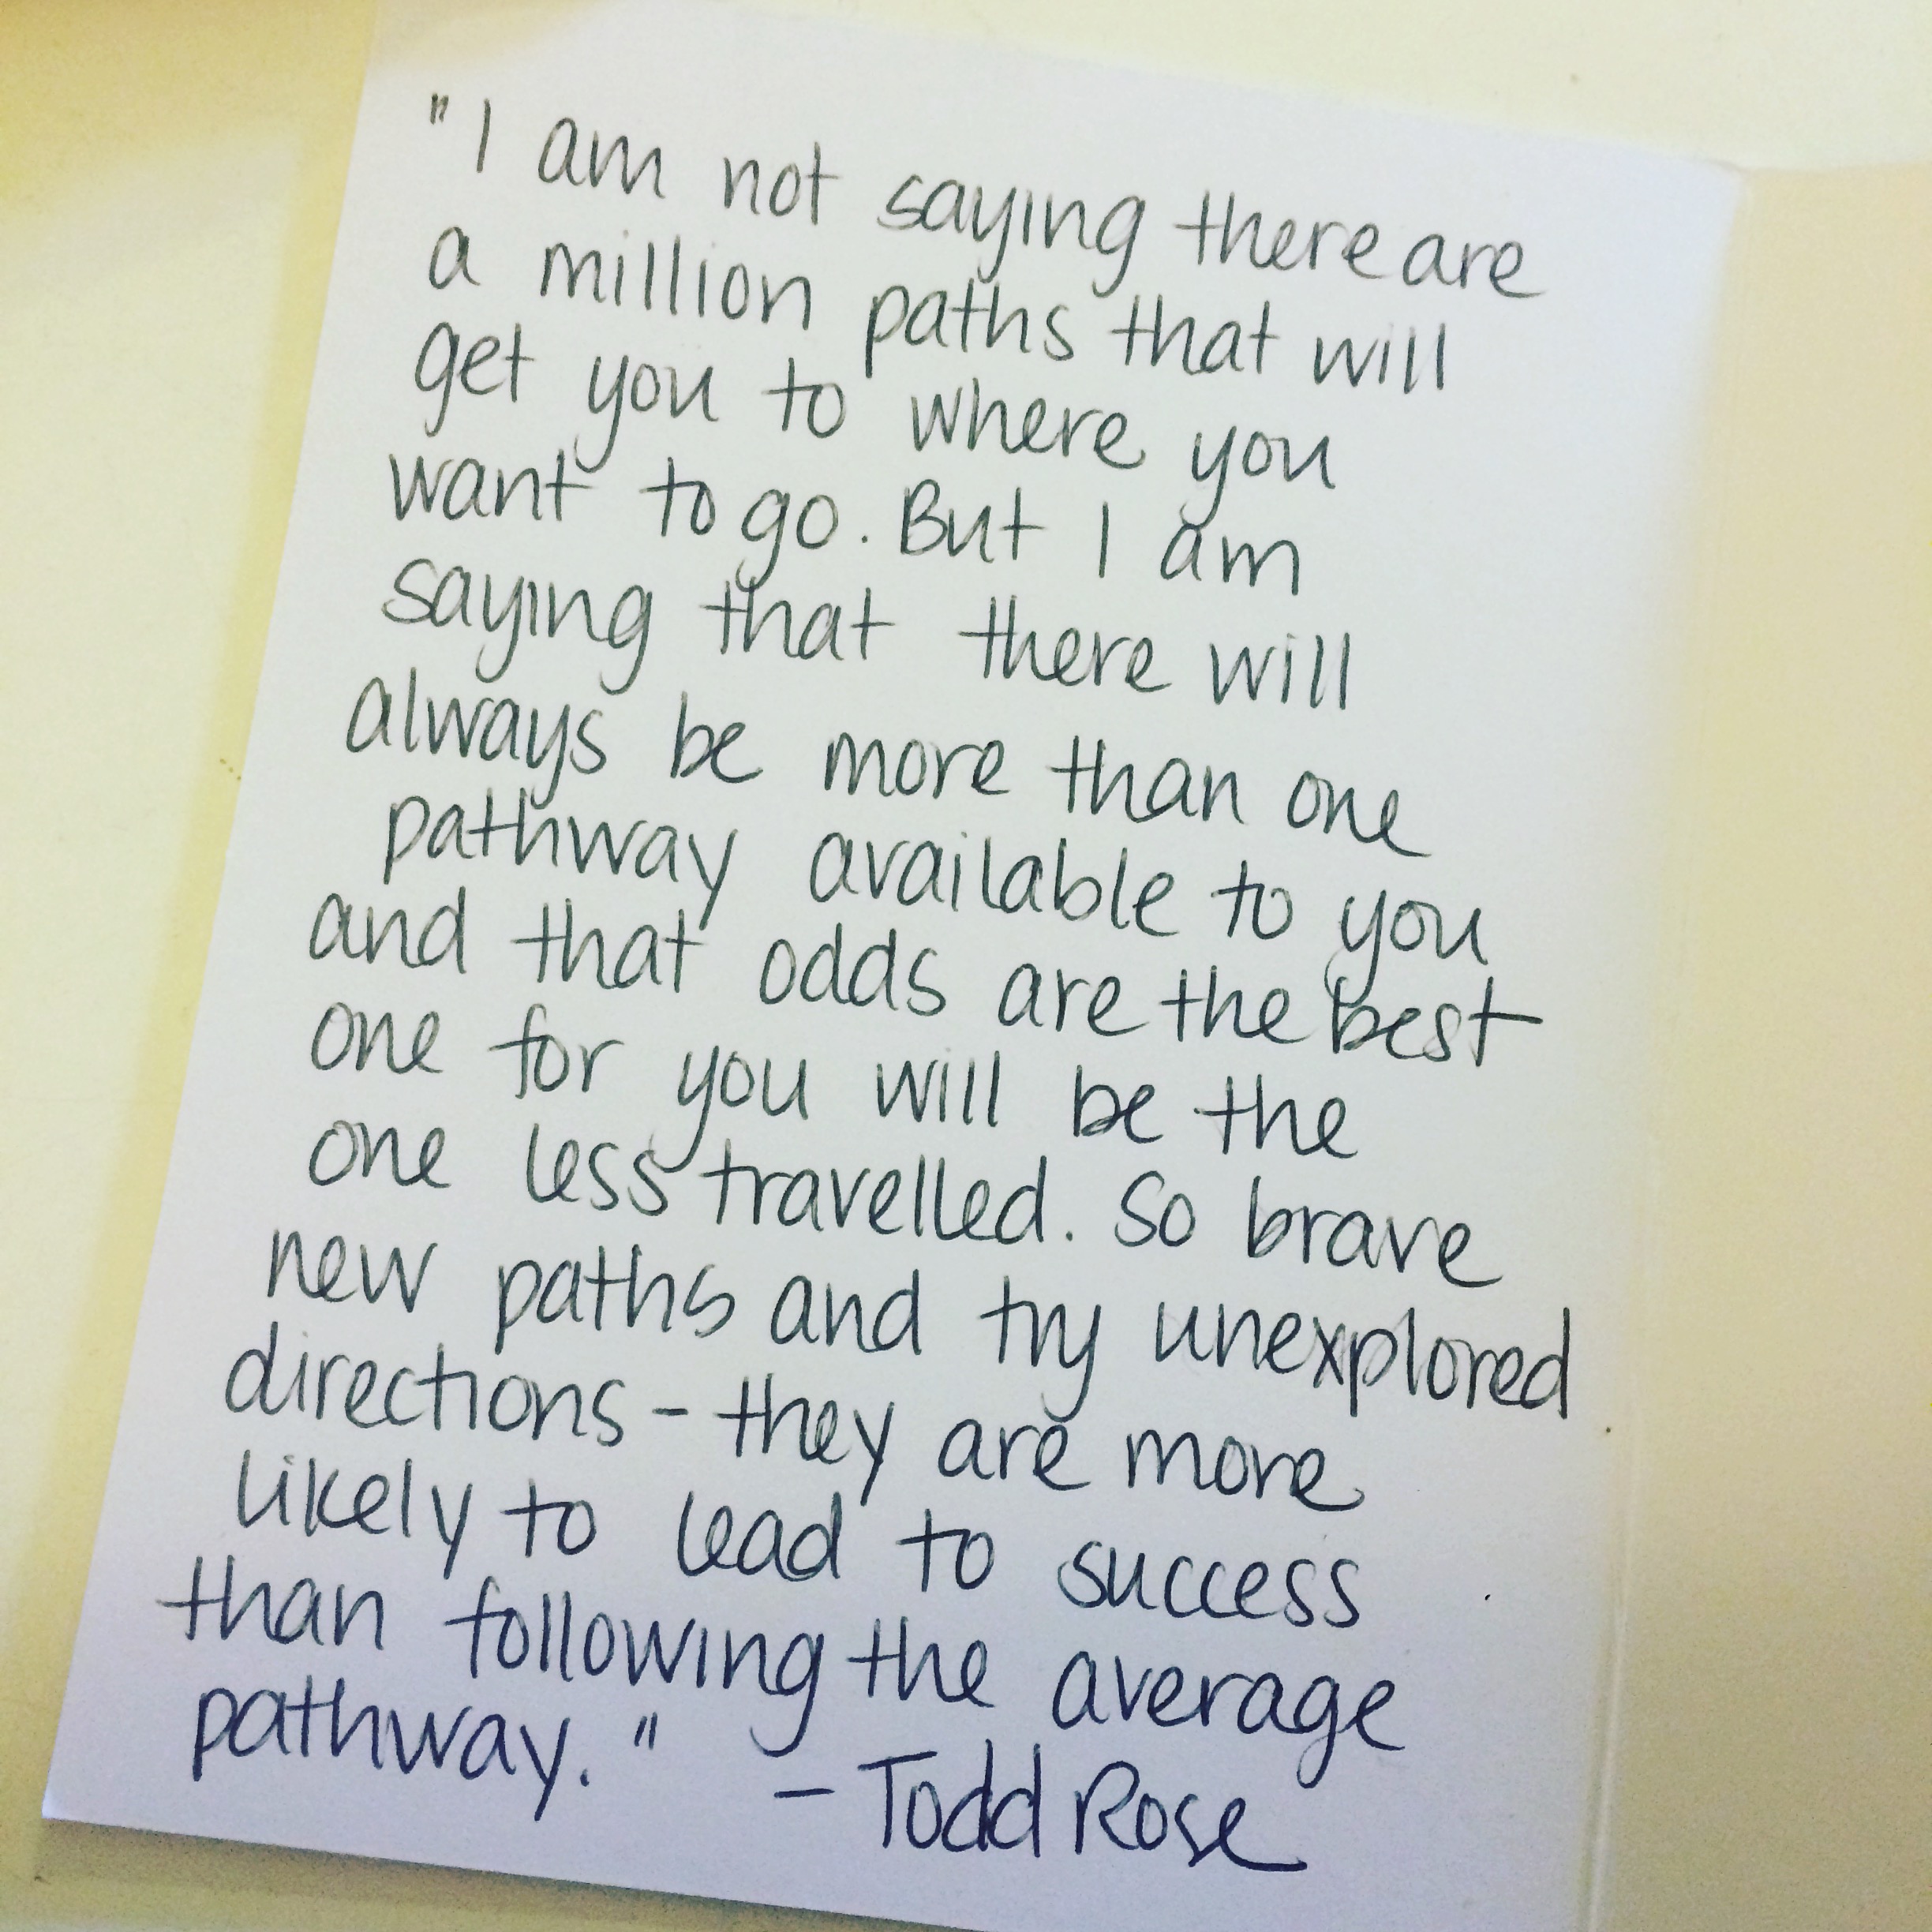 "I am not saying there are
a million paths that will
get you to where you
want to go. But I am
saying that there will
always be more than one
pathway available to you
and that odds are the best
one for you will be the
one less travelled. So brave
new paths and try unexplored
directions - they are more
likely to lead to success
than following the average
pathway." - Todd Rose